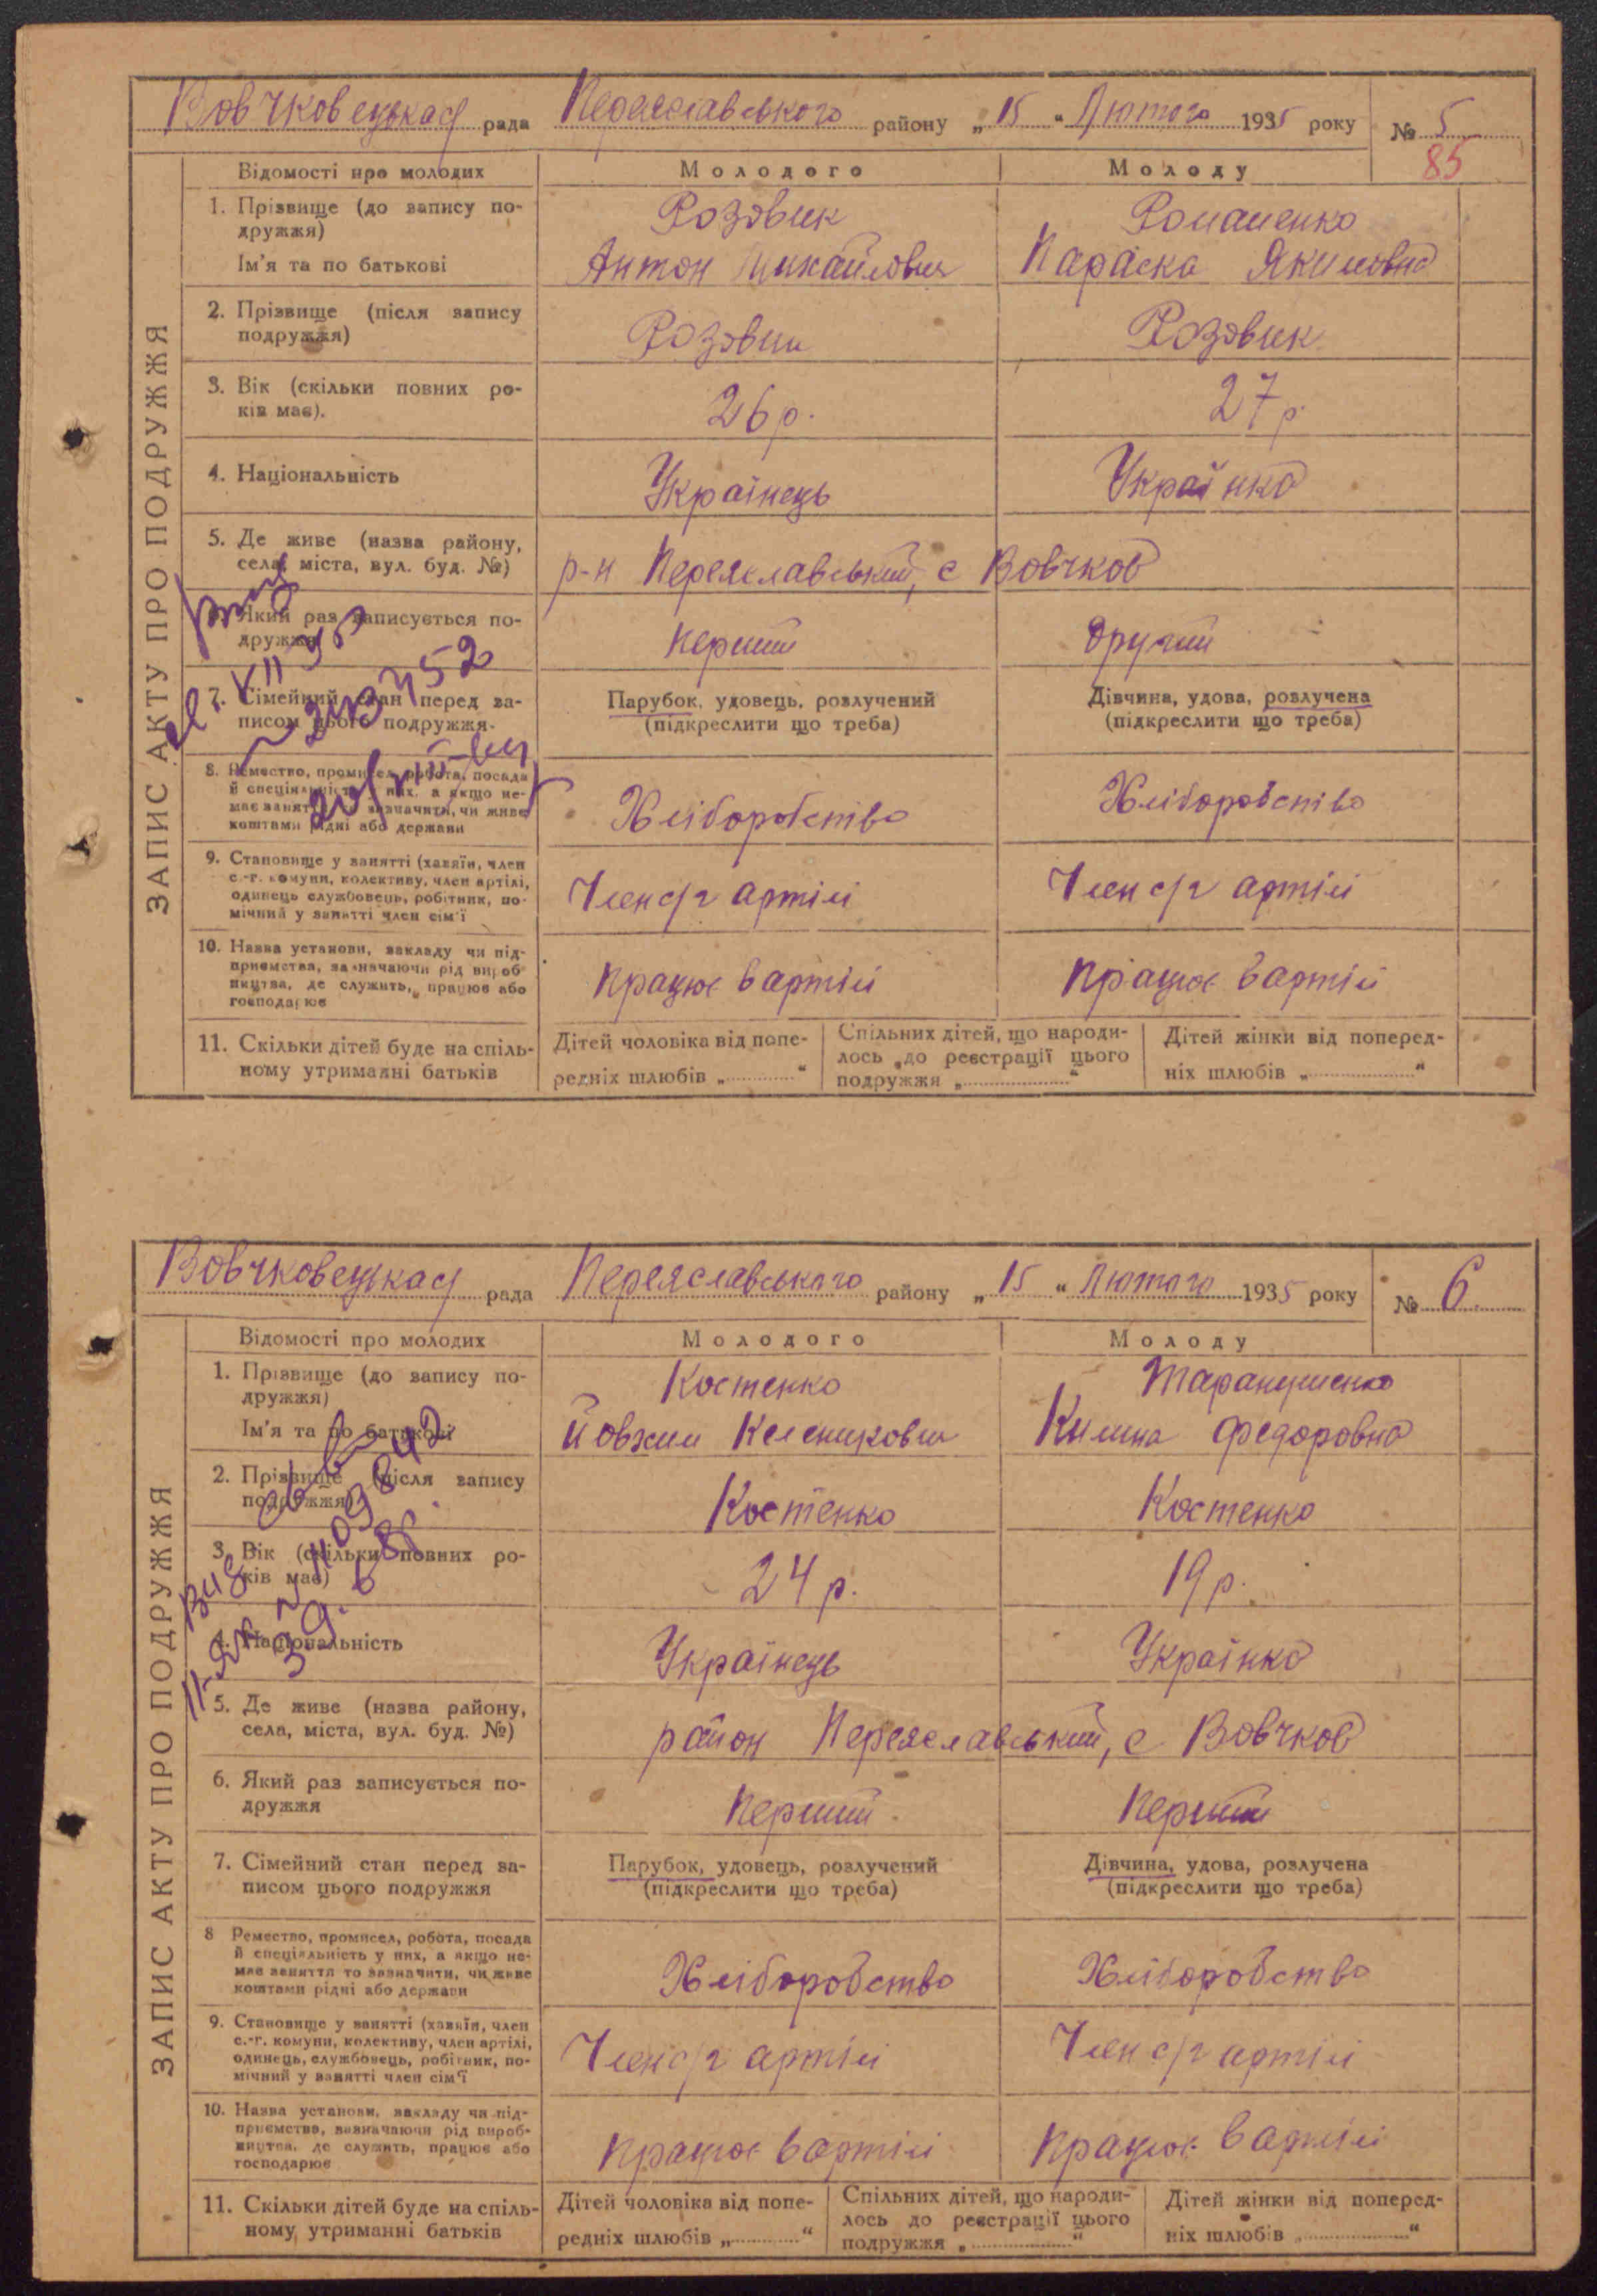 Вовчковецькая рада Переяславського району „15“ Лютого 1935 року № 5
85
ЗАПИС АКТУ ПРО ПОДРУЖЖЯ
Відомості про молодих Молодого Молоду
1. Прізвище (до запису по-
дружжя)
Розовик Романенко
Ім'я та по батькові
Антон Михайлович Параска Якимовна
2. Прізвище (після запису
подружжя)
Розовик Розовик
3. Вік (скільки повних ро-
ків має).
26 р. 27 р.
4. Національність
Українець Українка
5. Де живе (назва району,
села, міста, вул. буд. №)
р-н Переяславський, с Вовчков
Який раз записується по-
дружжя
перший другий
7. Сімейний стан перед за-
писом цього подружжя.
Парубок, удовець, розлучений
(підкреслити що треба)
Дівчина, удова, розлучена
(підкреслити що треба)
8. Ремество, промисел, робота, посада
й спеціяльність у них, а якщо не-
має заняття то зазначити, чи живе
коштами рідні або держави
Хліборобство Хліборобство
9. Становище у занятті (хазяїн, член
с.-г. комуни, колективу, член артілі,
одинець службовець, робітник, по-
мічний у занятті член сім'ї
Член с/г артілі Член с/г артілі
10. Назва установи, закладу чи під-
приємства, зазначаючи рід вироб-
ництва, де служить, працює або
господарює
працює в артілі працює в артілі
11. Скільки дітей буде на спіль-
ному утриманні батьків
Дітей чоловіка від попе-
редніх шлюбів „ “
Спільних дітей, що народи-
лось до реєстрації цього
подружжя „ “
Дітей жінки від поперед-
ніх шлюбів „ “
Вовчковецькая рада Переяславського району „15“ Лютого 1935 року № 6
ЗАПИС АКТУ ПРО ПОДРУЖЖЯ
Відомості про молодих Молодого Молоду
1. Прізвище (до запису по-
дружжя)
Костенко Таранушенко
Ім'я та по батькові
Йовхим Килина Федоровна
2. Прізвище (після запису
подружжя)
Костенко Костенко
3. Вік (скільки повних ро-
ків має)
24 р. 19 р.
4. Національність
Українець Українка
5. Де живе (назва району,
села, міста, вул. буд. №)
район Переяславський, с Вовчков
6. Який раз записується по-
дружжя
перший перший
7. Сімейний стан перед за-
писом цього подружжя
Парубок, удовець, розлучений
(підкреслити що треба)
Дівчина, удова, розлучена
(підкреслити що треба)
8 Ремество, промисел, робота, посада
й спеціяльність у них, а якщо не-
має заняття то зазначити, чи живе
коштами рідні або держави
Хліборобство Хліборобство
9. Становище у занятті (хазяїн, член
с.-г. комуни, колективу, член артілі,
одинець, службовець, робітник, по-
мічний у занятті член сім'ї
Член с/г артілі Член с/г артілі
10. Назва установи, закладу чи під-
приємства, зазначаючи рід вироб-
ництва, де служить, працює або
господарює
працює в артілі працює в артілі
11. Скільки дітей буде на спіль-
ному утриманні батьків
Дітей чоловіка від попе-
редніх шлюбів „ “
Спільних дітей, що народи-
лось до реєстрації цього
подружжя „ “
Дітей жінки від поперед-
ніх шлюбів „ “